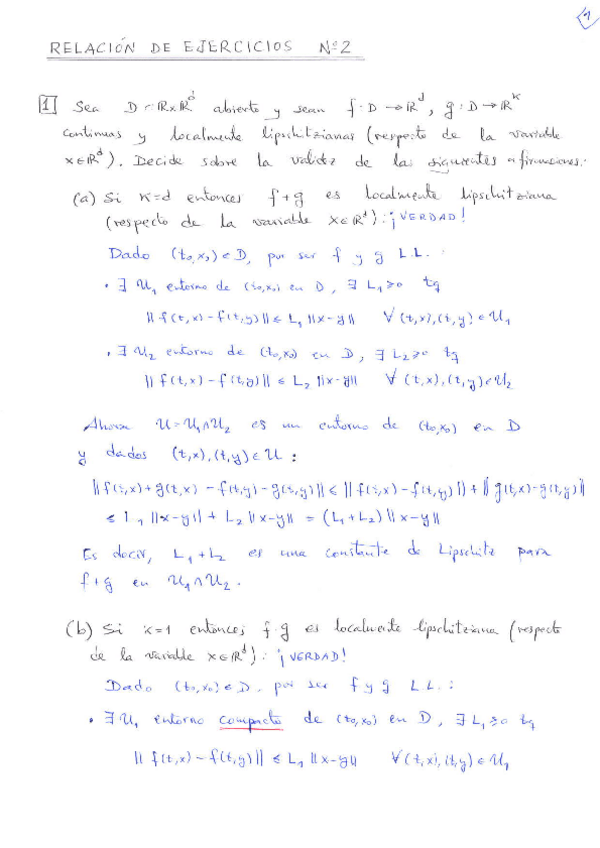 1
RELACIÓN DE EJERCICIOS Nº2
1 Sea D ⊂ ℝxℝᵈ abierto y sean f: D → ℝᵈ, g: D → ℝᴷ
continuas y localmente lipschitzianas (respecto de la variable
x∈ℝᵈ). Decide sobre la validez de las siguientes afirmaciones:
(a) Si K=d entonces f+g es localmente lipschitziana
(respecto de la variable x∈ℝᵈ): ¡VERDAD!
Dado (t₀,x₀)∈D, por ser f y g L.L.:
• ∃ U₁ entorno de (t₀,x₀) en D, ∃ L₁≥0 tq
||f(t,x)-f(t,y)|| ≤ L₁ ||x-y|| ∀ (t,x),(t,y)∈U₁
• ∃ U₂ entorno de (t₀,x₀) en D, ∃ L₂≥0 tq
||f(t,x)-f(t,y)|| ≤ L₂ ||x-y|| ∀ (t,x),(t,y)∈U₂
Ahora U=U₁∩U₂ es un entorno de (t₀,x₀) en D
y dados (t,x),(t,y)∈U:
||f(t,x)+g(t,x)-f(t,y)-g(t,y)|| ≤ ||f(t,x)-f(t,y)|| + ||g(t,x)-g(t,y)||
≤ L₁ ||x-y|| + L₂ ||x-y|| = (L₁+L₂) ||x-y||
Es decir, L₁+L₂ es una constante de Lipschitz para
f+g en U₁∩U₂.
(b) Si K=1 entonces f·g es localmente lipschitziana (respecto
de la variable x∈ℝᵈ): ¡VERDAD!
Dado (t₀,x₀)∈D, por ser f y g L.L.:
• ∃ U₁ entorno compacto de (t₀,x₀) en D, ∃ L₁≥0 tq
||f(t,x)-f(t,y)|| ≤ L₁ ||x-y|| ∀ (t,x),(t,y)∈U₁